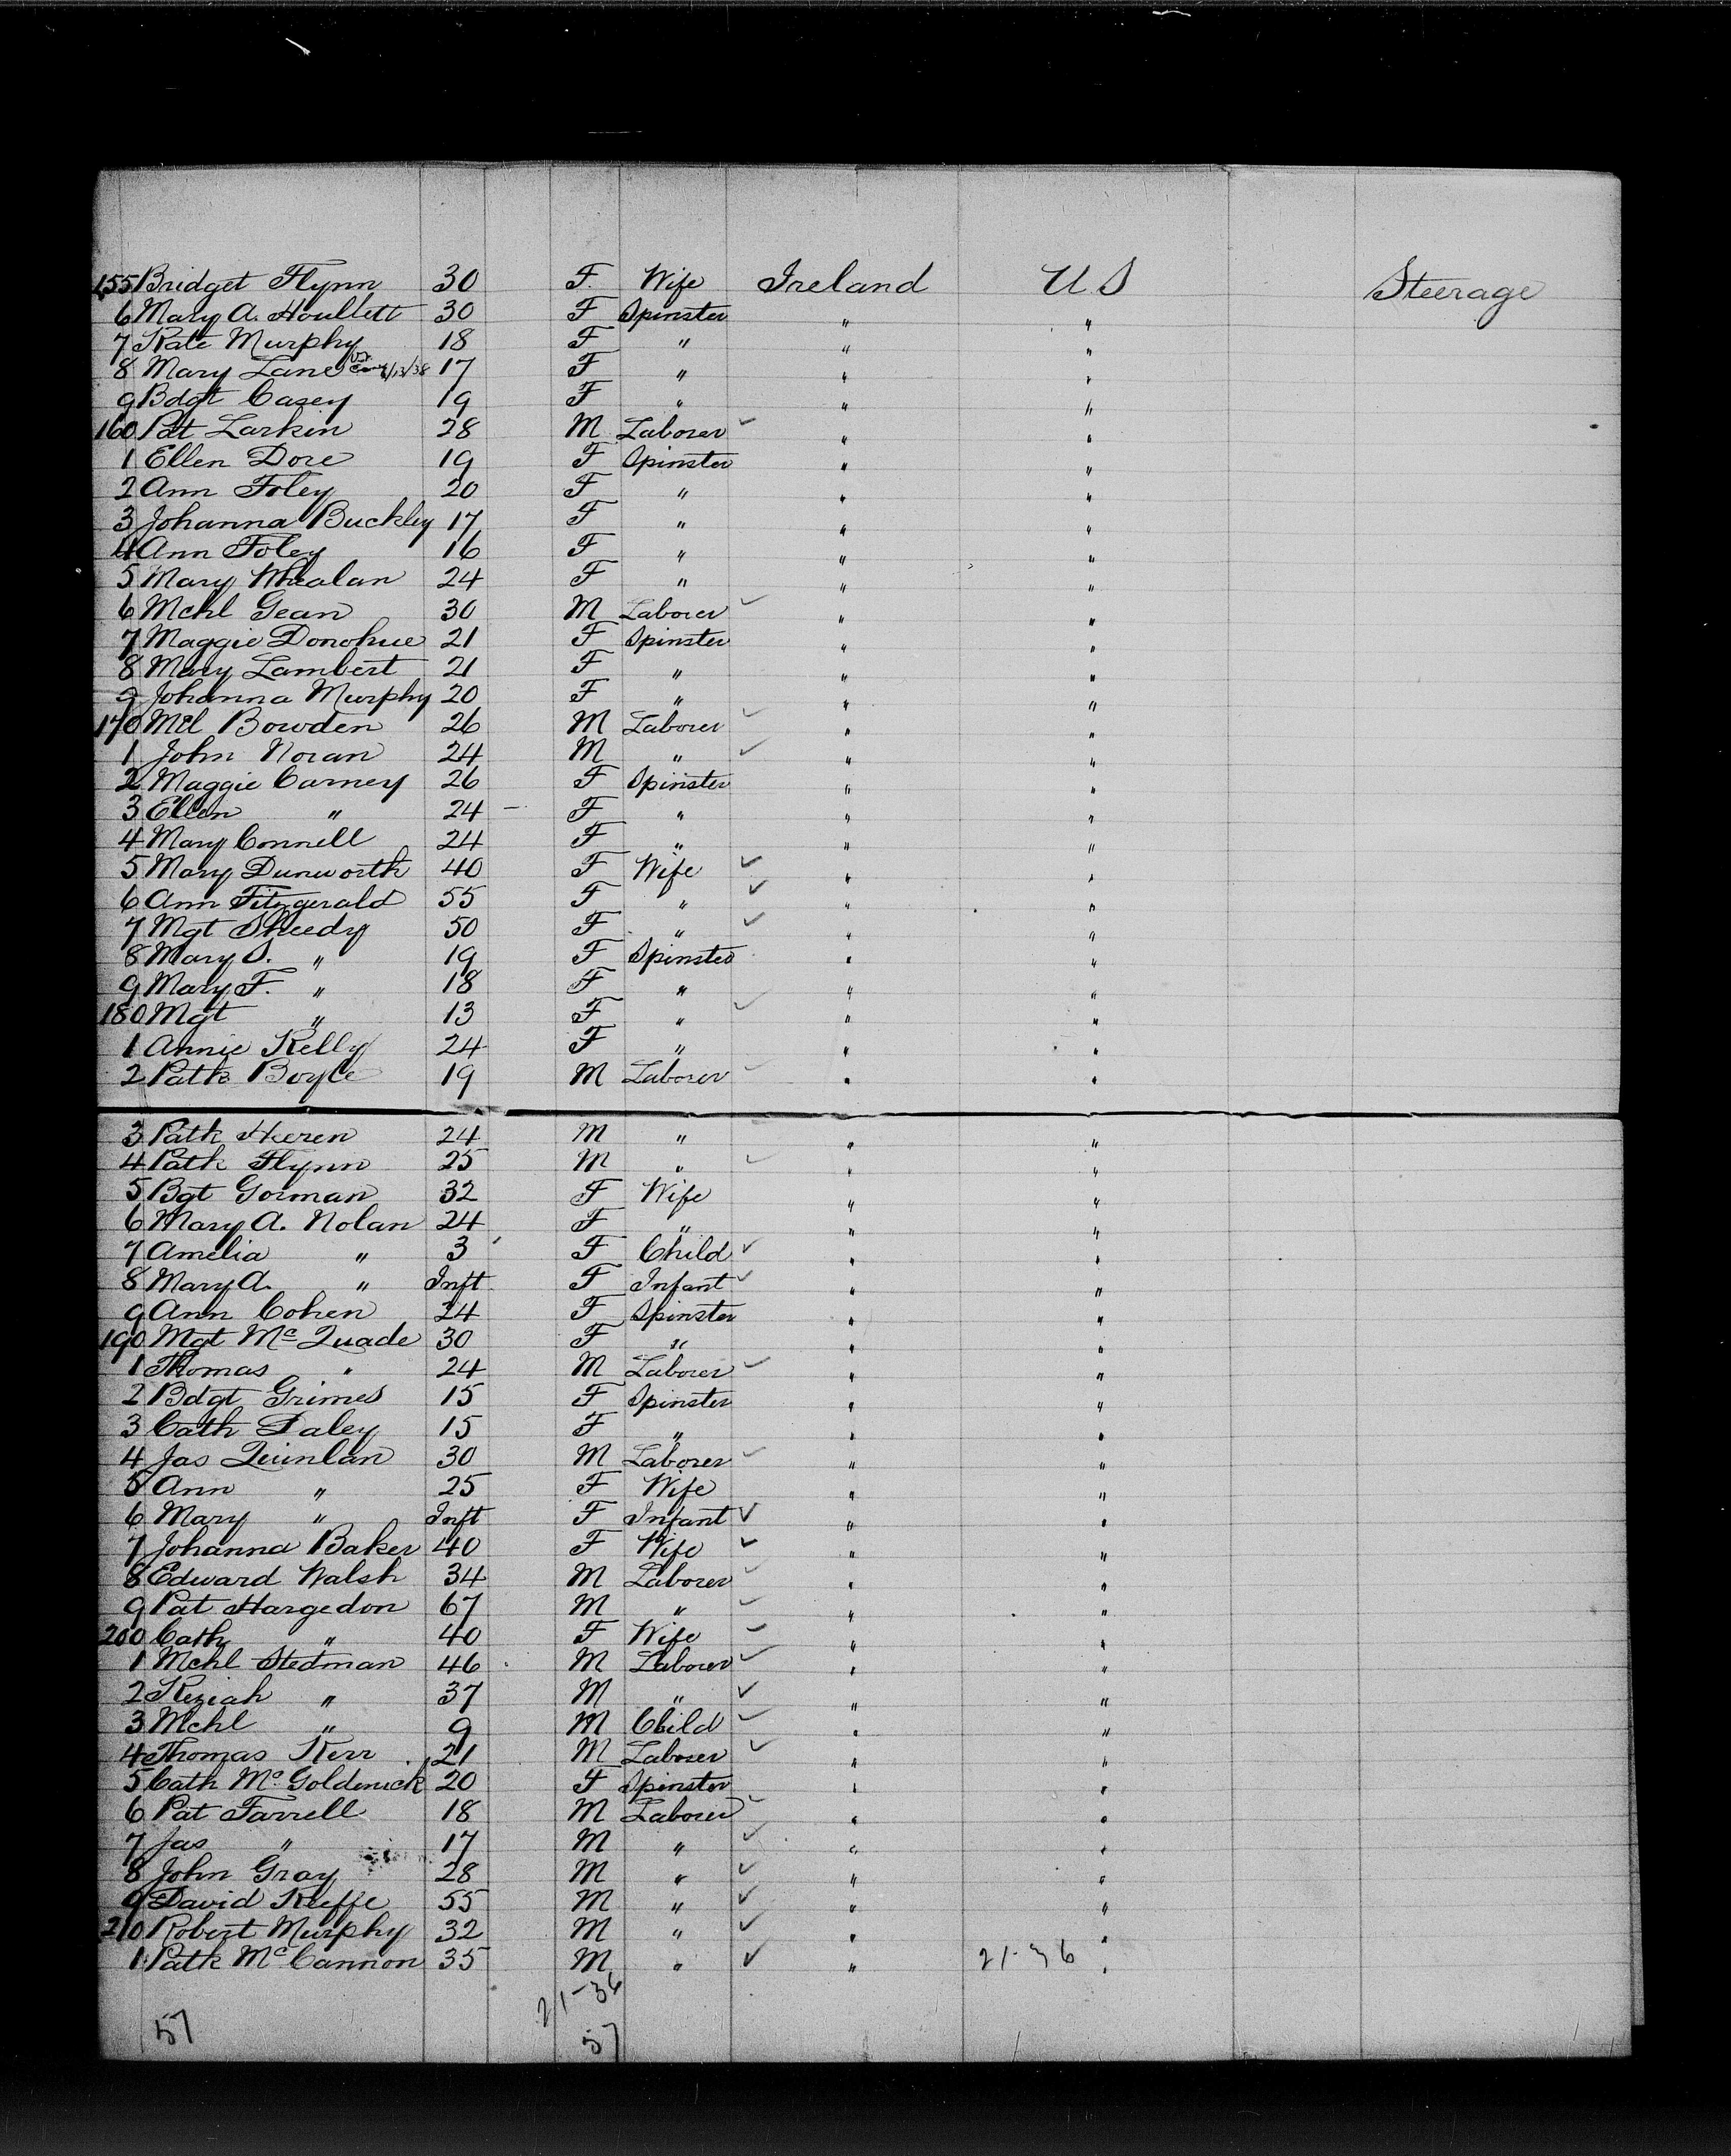 155 Bridget Flynn 30 F. Wife Ireland U S Steerage
6 Mary A. Houllett 30 F Spinster " "
7 Kate Murphy 18 F " " "
8 Mary Lane 6/13/38 17 F " " "
9 Bdgt Casey 19 F " " "
160 Pat Larkin 28 M Laborer ✓ " "
1 Ellen Dore 19 F Spinster " "
2 Ann Foley 20 F " " "
3 Johanna Buckley 17 F " " "
4 Ann Foley 16 F " " "
5 Mary Whealan 24 F " " "
6 Mchl Gean 30 M Laborer ✓ " "
7 Maggie Donohue 21 F Spinster " "
8 Mary Lambert 21 F " " "
9 Johanna Murphy 20 F " " "
170 Mcl Bowden 26 M Laborer ✓ " "
1 John Noran 24 M " ✓ " "
2 Maggie Carney 26 F Spinster " "
3 Ellen " 24 – F " " "
4 Mary Connell 24 F " " "
5 Mary Dunworth 40 F Wife ✓ " "
6 Ann Fitzgerald 55 F " ✓ " "
7 Mgt Sheedy 50 F " ✓ " "
8 Mary S. " 19 F Spinster " "
9 Mary F. " 18 F " " "
180 Mgt " 13 F " ✓ " "
1 Annie Kelly 24 F " " "
2 Patk Boyle 19 M Laborer ✓ " "
3 Patk Heren 24 M " " "
4 Patk Flynn 25 M " ✓ " "
5 Bgt Gorman 32 F Wife " "
6 Mary A. Nolan 24 F " " "
7 Amelia " 3 F Child ✓ " "
8 Mary A. " Inft F Infant ✓ " "
9 Ann Cohen 24 F Spinster " "
190 Mgt Mc Quade 30 F " " "
1 Thomas " 24 M Laborer ✓ " "
2 Bdgt Grimes 15 F Spinster " "
3 Cath Daley 15 F " " "
4 Jas Quinlan 30 M Laborer ✓ " "
5 Ann " 25 F Wife " "
6 Mary " Inft F Infant ✓ " "
7 Johanna Baker 40 F Wife ✓ " "
8 Edward Walsh 34 M Laborer ✓ " "
9 Pat Hargedon 67 M " ✓ " "
200 Cath " 40 F Wife ✓ " "
1 Mchl Stedman 46 M Laborer ✓ " "
2 Keziah " 37 M " ✓ " "
3 Mchl " 9 M Child ✓ " "
4 Thomas Kerr 21 M Laborer ✓ " "
5 Cath Mc Goldenick 20 F Spinster " "
6 Pat Farrell 18 M Laborer ✓ " "
7 Jas " 17 M " ✓ " "
8 John Gray 28 M " ✓ " "
9 David Keeffe 55 M " ✓ " "
210 Robert Murphy 32 M " ✓ " "
1 Patk Mc Cannon 35 M " ✓ " 21-36 "
21-36
57 57